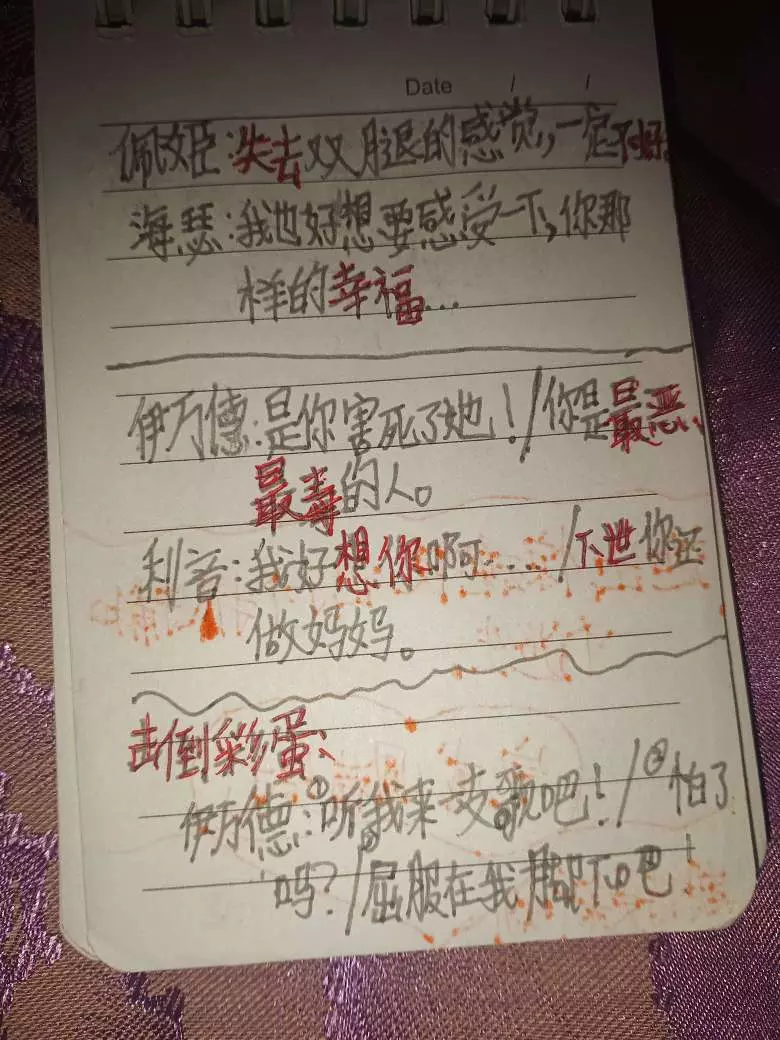 Date / /
佩姬:失去双腿的感觉,一定不好。
海瑟:我也好想要感受一下,你那
样的幸福...
伊万德:是你害死了她!/你是最恶、
最毒的人。
利吝:我好想你啊..../下世你还
做妈妈。
击倒彩蛋:
伊万德:①听我来一支歌吧!/②怕了
吗?/③屈服在我脚下吧!